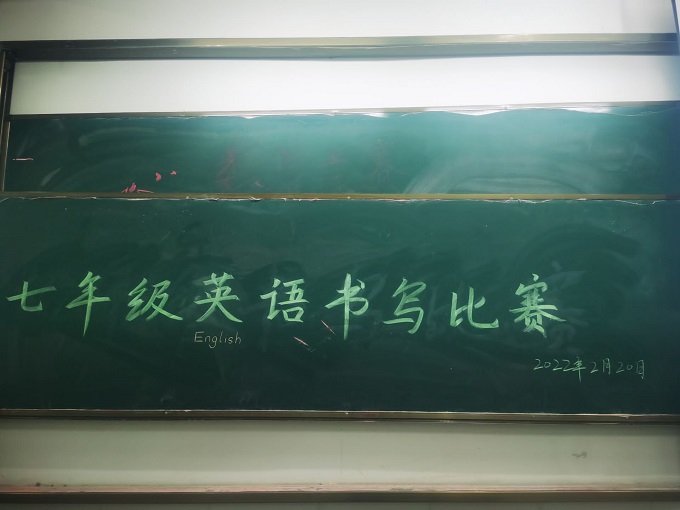 七年级英语书写比赛
English
2022年2月20日